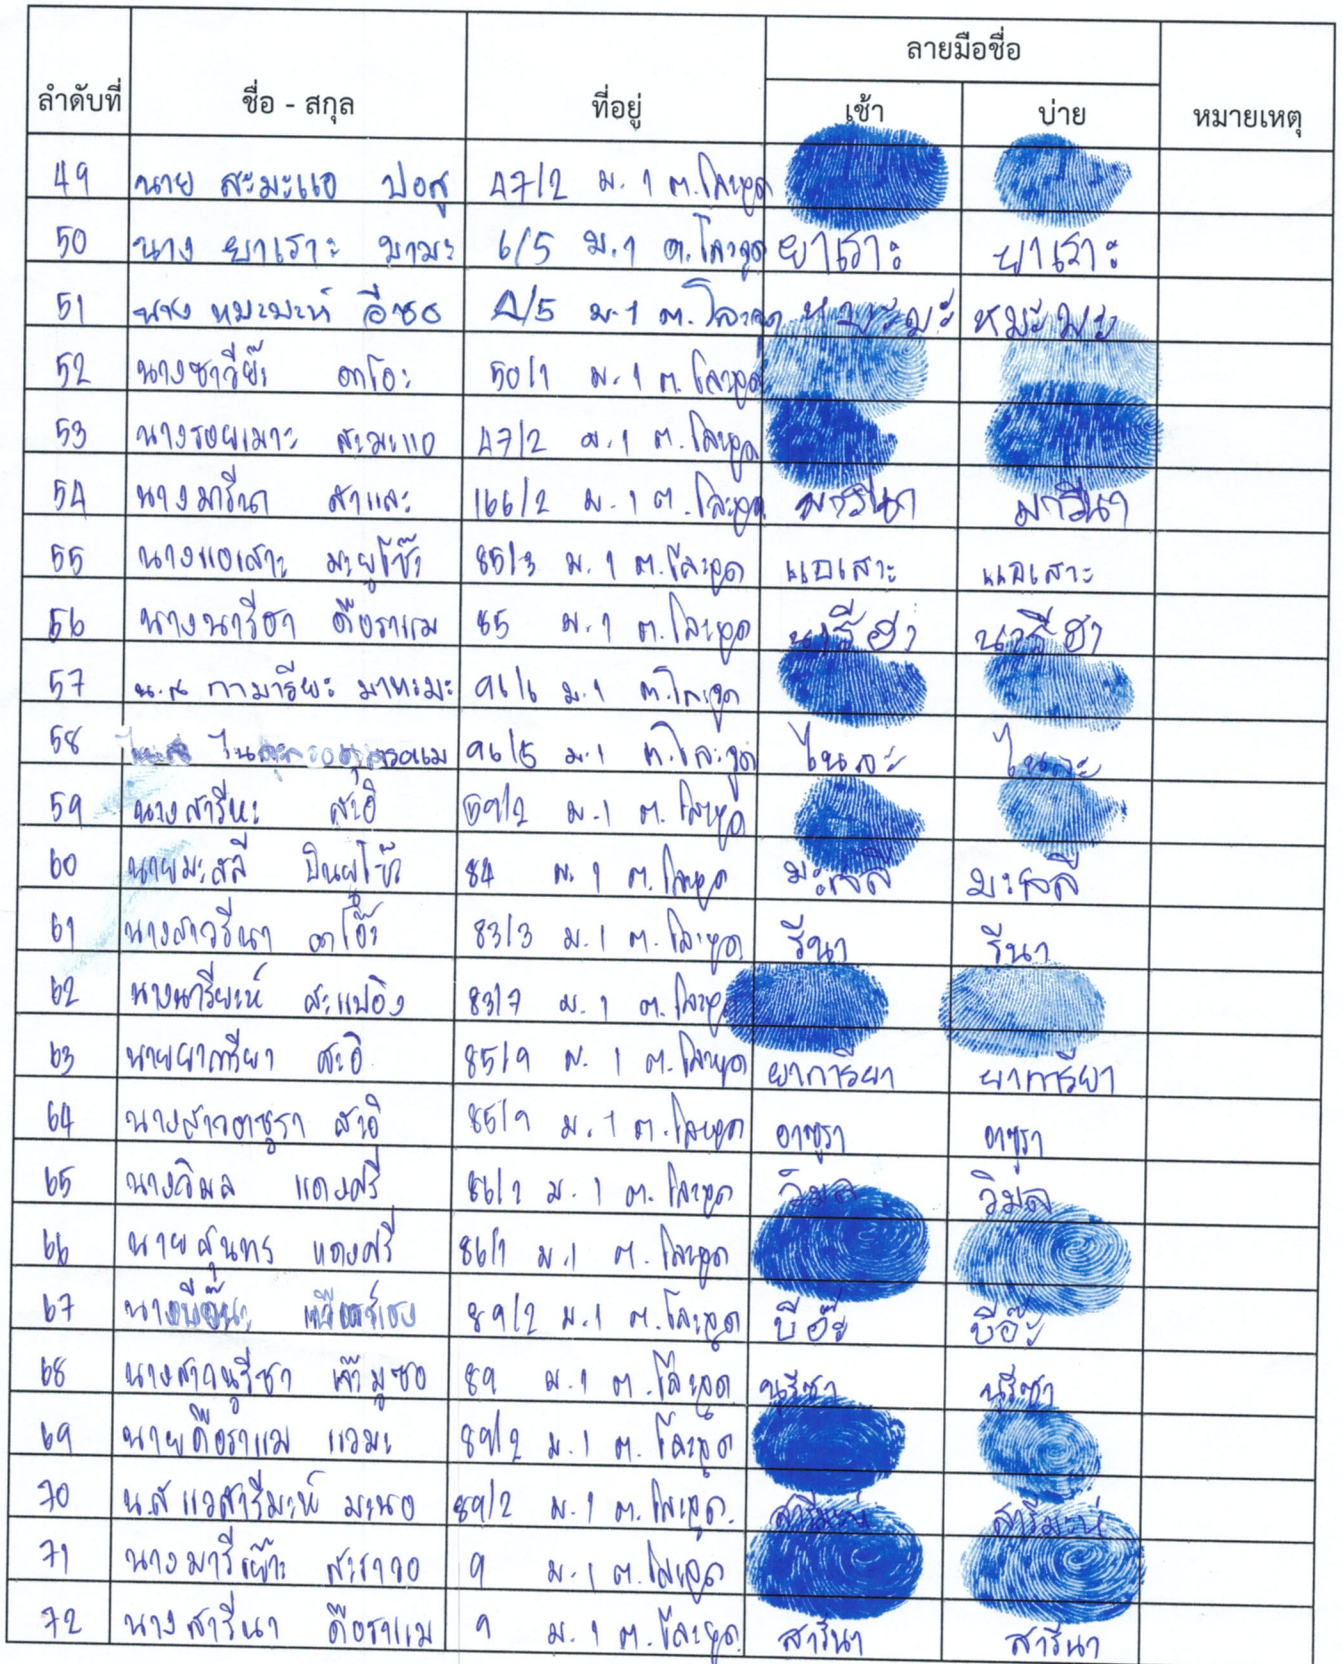 ลำดับที่ ชื่อ - สกุล ที่อยู่ ลายมือชื่อ หมายเหตุ
เช้า บ่าย
49 นาย สะมะแอ ปอสู 47/2 ม. 1 ต. โละจูด
50 นาง ยาเราะ มามะ 6/5 ม.1 ต. โละจูด ยาเราะ ยาเราะ
51 นาง หมะมะห์ อีซอ 4/5 ม.1 ต. โละจูด หมะมะ หมะมะ
52 นางซาวียะ๊ อาโอะ 50/1 ม.1 ต. โละจูด
53 นางรอยเมาะ สะมะแอ 47/2 ม.1 ต. โละจูด
54 นางมารีนา สาและ 166/2 ม.1 ต. โละจูด มารีนา มารีนา
55 นางแอเสาะ 85/3 ม. 1 ต. โละจูด แอเสาะ แอเสาะ
56 นางนารีฮา ดือราแม 85 ม.1 ต. โละจูด นารีฮา นารีฮา
57 น.ส กามารียะ มาหะมะ 96/6 ม.1 ต.โละจูด
58 96/5 ม.1 ต.โละจูด ไนละ ไนละ
59 นางสารีหะ สะอิ 59/2 ม.1 ต. โละจูด
60 นายมะสลี 84 ม. 1 ต. โละจูด มะสลี มะสลี
61 นางสาวรีนา 83/3 ม.1 ต. โละจูด รีนา รีนา
62 นางนารียะห์ สะแปอิง 83/7 ม. 1 ต. โละจูด
63 นายยาการียา สะอิ 85/9 ม. 1 ต. โละจูด ยาการียา ยาการียา
64 นางสาวอาซูรา สะอิ 85/9 ม. 1 ต. โละจูด อาซูรา อาซูรา
65 นางวิมล แดงศรี 86/1 ม. 1 ต. โละจูด วิมล วิมล
66 นายสุนทร แดงศรี 86/1 ม.1 ต. โละจูด
67 89/2 ม.1 ต. โละจูด
68 นางสาวนูรีซา เจ๊ะมูซอ 89 ม.1 ต. โละจูด นูรีซา นูรีซา
69 นายดือราแม แวมะ 89/2 ม.1 ต. โละจูด
70 น.ส แวสารีมะห์ มะนอ 89/2 ม. 1 ต. โละจูด. สารีมะห์ สารีมะห์
71 9 ม.1 ต. โละจูด
72 นางสารีนา ดือราแม 9 ม. 1 ต. โละจูด สารีนา สารีนา